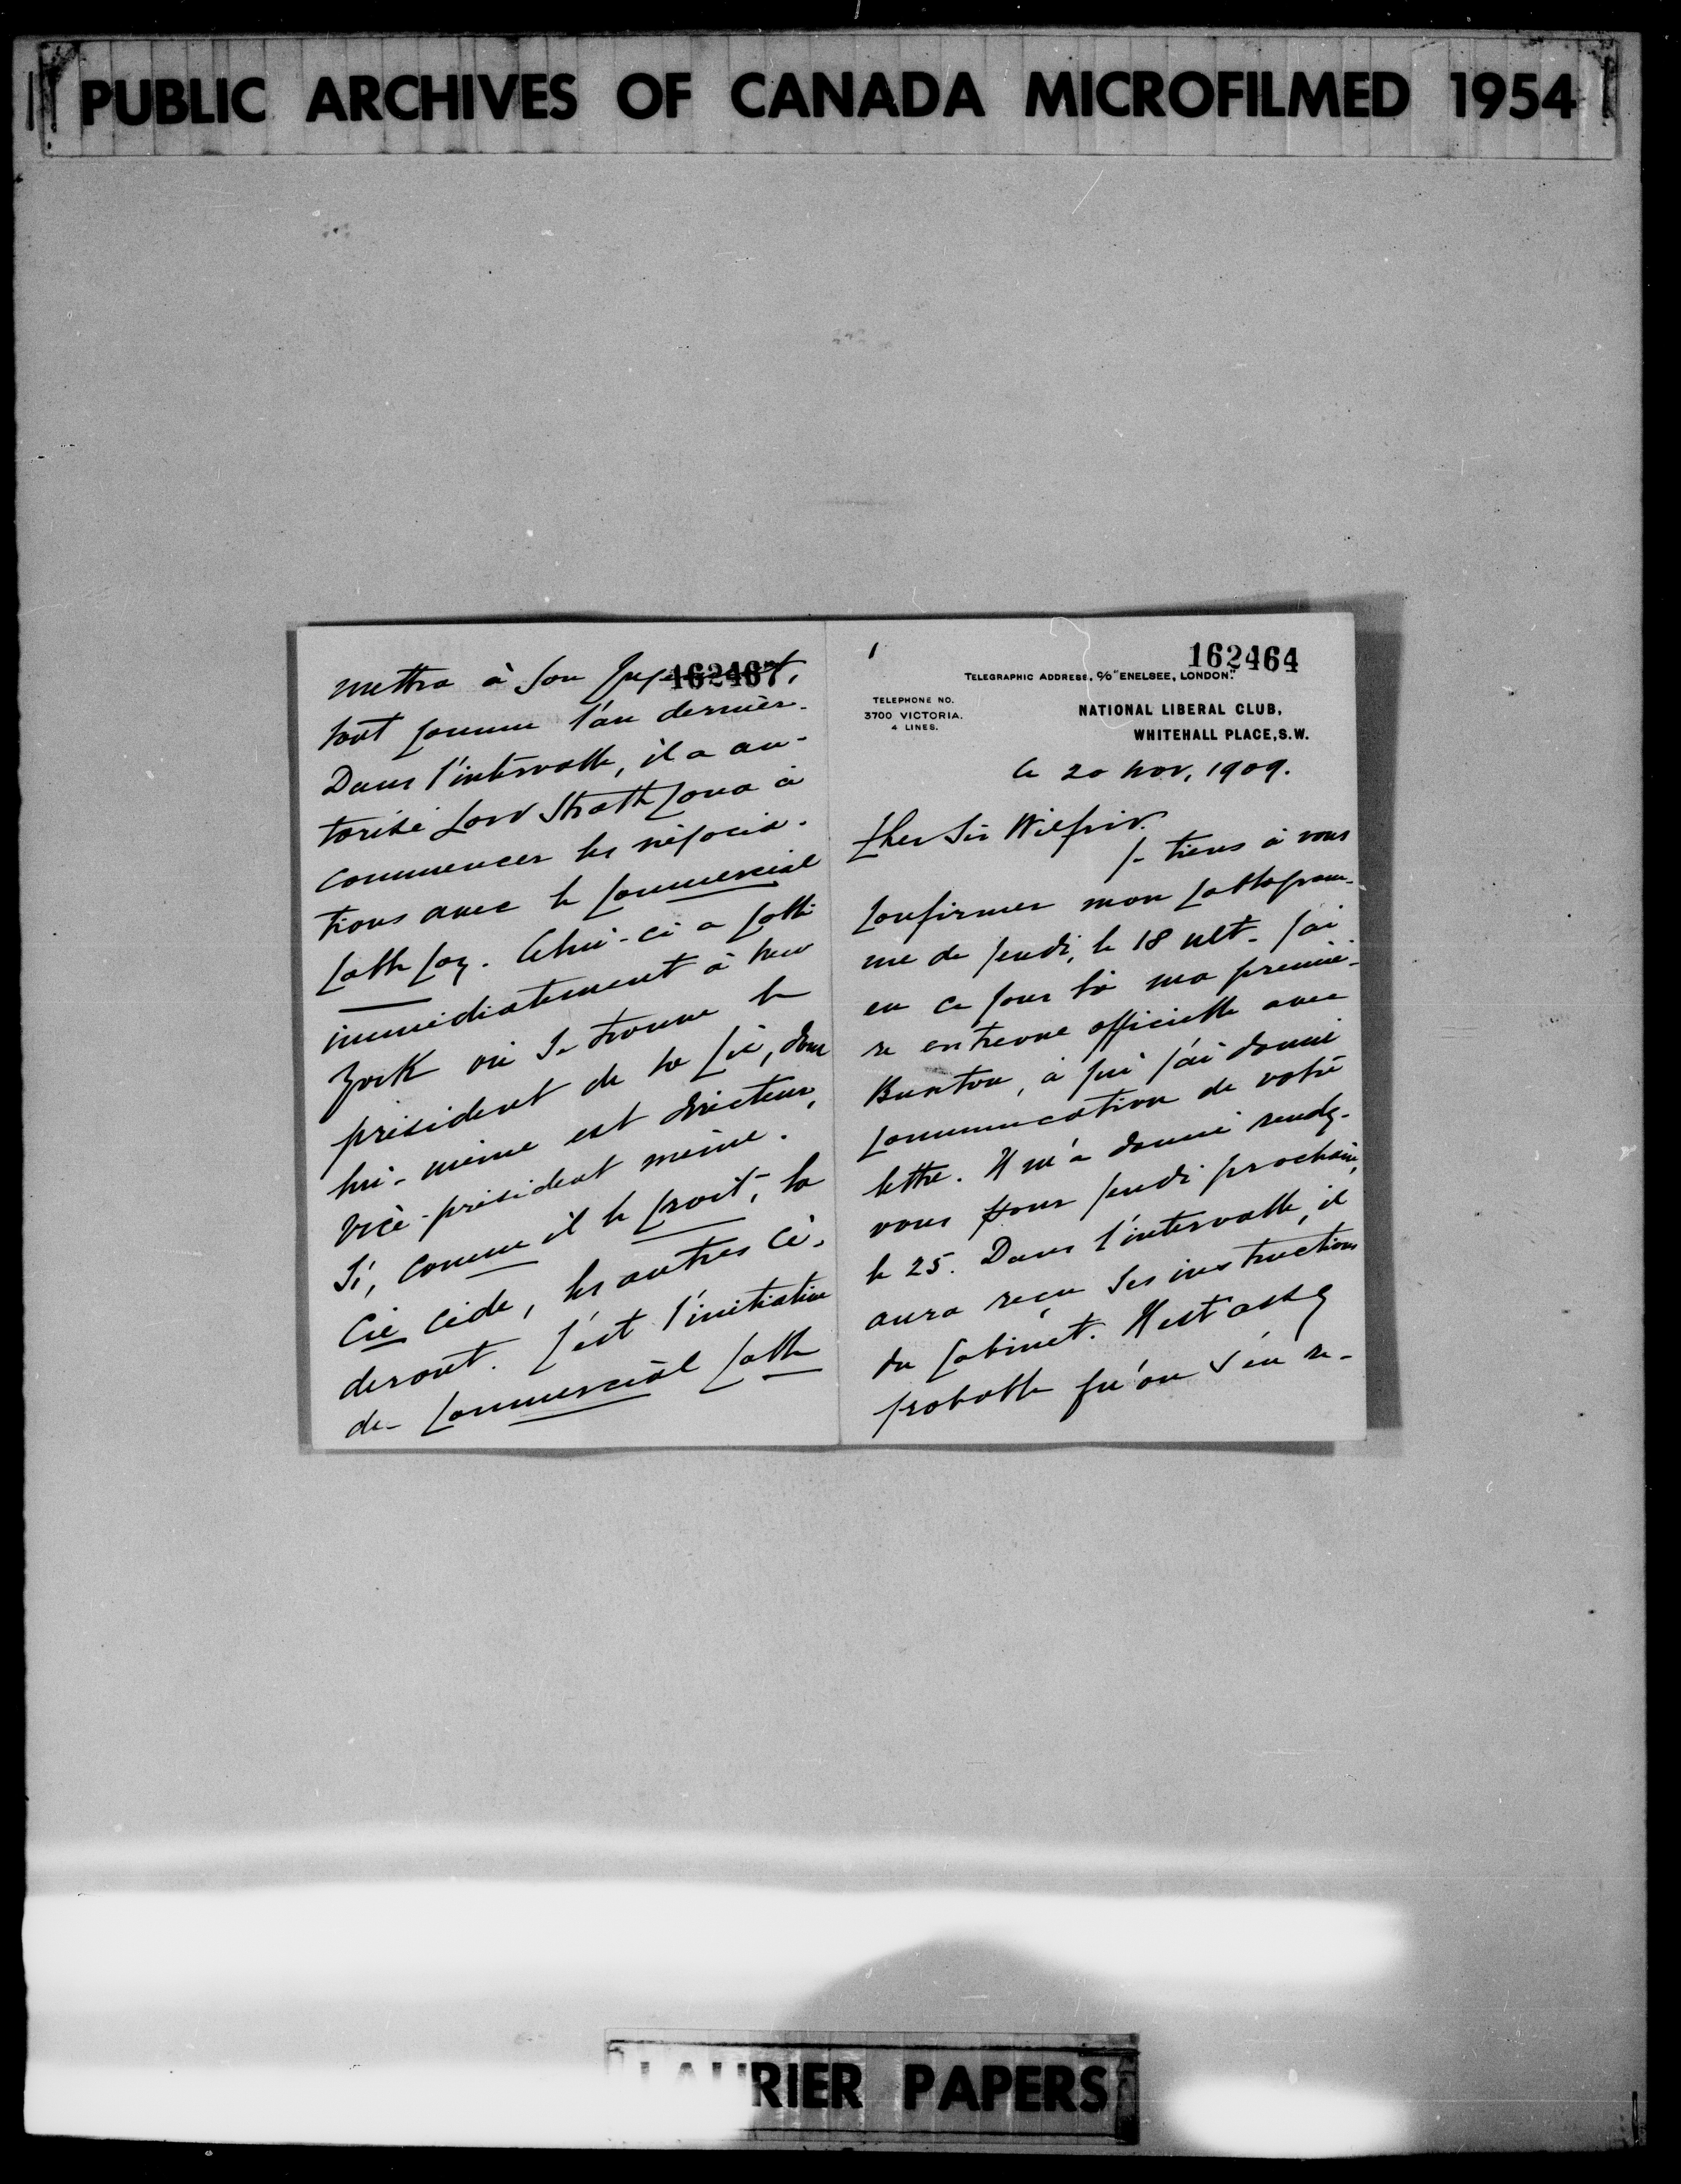 PUBLIC ARCHIVES OF CANADA MICROFILMED 1954
162467
mettra à son jugement,
tout comme l'an dernier.
Dans l'intervalle, il a au-
torisé Lord Strathcona à
commencer les négocia-
tions avec le Commercial
Cable Coy. Celui-ci a cablé
immédiatement à New
York où se trouve le
président de la Cie, dont
lui-même est directeur,
vice-président même.
Si, comme il le croit, la
Cie cède, les autres cè-
deront. C'est l'initiative
de Commercial Cable
1
162464
TELEGRAPHIC ADDRESS, C/O "ENELSEE, LONDON."
TELEPHONE NO.
3700 VICTORIA.
4 LINES.
NATIONAL LIBERAL CLUB,
WHITEHALL PLACE, S.W.
le 20 nov, 1909.
Cher Sir Wilfrid.
Je tiens à vous
confirmer mon cablogram-
me de jeudi, le 18 ult. J'ai
eu ce jour là ma premiè-
re entrevue officielle avec
Buxton, à qui j'ai donné
communication de votre
lettre. Il m'a donné rendez-
vous pour jeudi prochain,
le 25. Dans l'intervalle, il
aura reçu ses instructions
du cabinet. Il est assez
probable qu'on s'en re-
LAURIER PAPERS